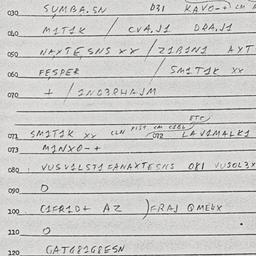 030 SUMBA.SN 031 KAVO-+ CM
040 M1T1K / CVA.J1 DRA.J1
050 NAXTESNS XX / Z1B1N1 AXT
060 FESPER / SM1T1K XX
070 + / 1NO3RHAJM
ETC
071 SM1T1K XX CLN PIST CM 072 LAV1MALK1
073 M1NX0-+
080 VUSV1LST1 FANAXTESNS 081 VUSOL3X
090 O
100 C1FR1O+ AZ )=RAJ QMELX
110 O
120 GAT681G8ESN